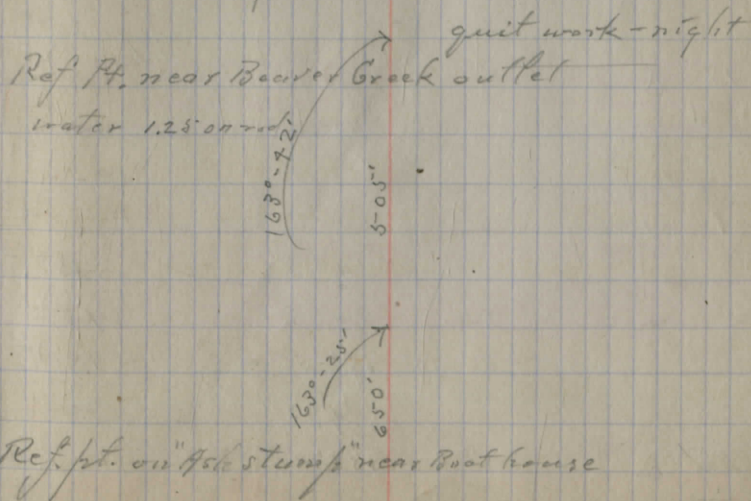 quit work - night
Ref Pt. near Beaver Creek outlet
water 1.25 on rod
163°-42'
505'
163°-25'
650'
Ref. pt. on "Ash stump" near Boot house